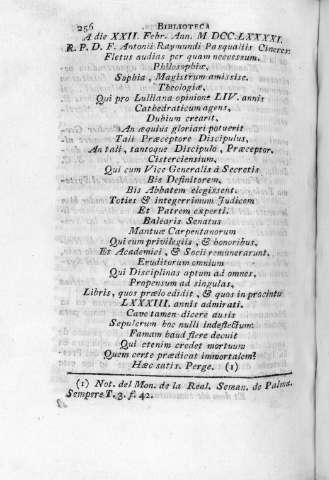 256 BIBLIOTECA
A die XXII. Febr. Ann. M DCC.LXXXXI.
R. P. D. F. Antonii Raymundi Pasqualiis Cineres
Fletus audias per quam necessum.
Philosophiæ,
Sophia, Magistrum amissise.
Theologiæ,
Qui pro Lulliana opinione LIV. annis
Cathedraticum agens,
Dubium crearit,
An æquius gloriari potuerit
Tali Præceptore Discipulus,
An tali, tantoque Discipulo, Præceptor.
Cisterciensium,
Qui eum Vice Generalis à Secretis
Bis Definitorem,
Bis Abbatem elegissent.
Toties & integerrimum Judicem
Et Patrem experti.
Balearis Senatus
Mantuæ Carpentanorum
Qui eum privilegiis, & honoribus,
Et Academici, & Socii remunerarunt.
Eruditorum omnium
Qui Disciplinas aptum ad omnes,
Propensum ad singulas,
Libris, quos prælo edidit, & quos in procintu
LXXXIII. annis admirati.
Cave tamen dicere ausis
Sepulcrum hoc nulli indeflectum.
Famam haud flere decuit
Qui etenim credet mortuum
Quem certe prædicat immortalem?
Hæc satis. Perge. (1)
(1) Not. del Mon. de la Real. Seman. de Palma.
Sempere T. 3. f. 42.